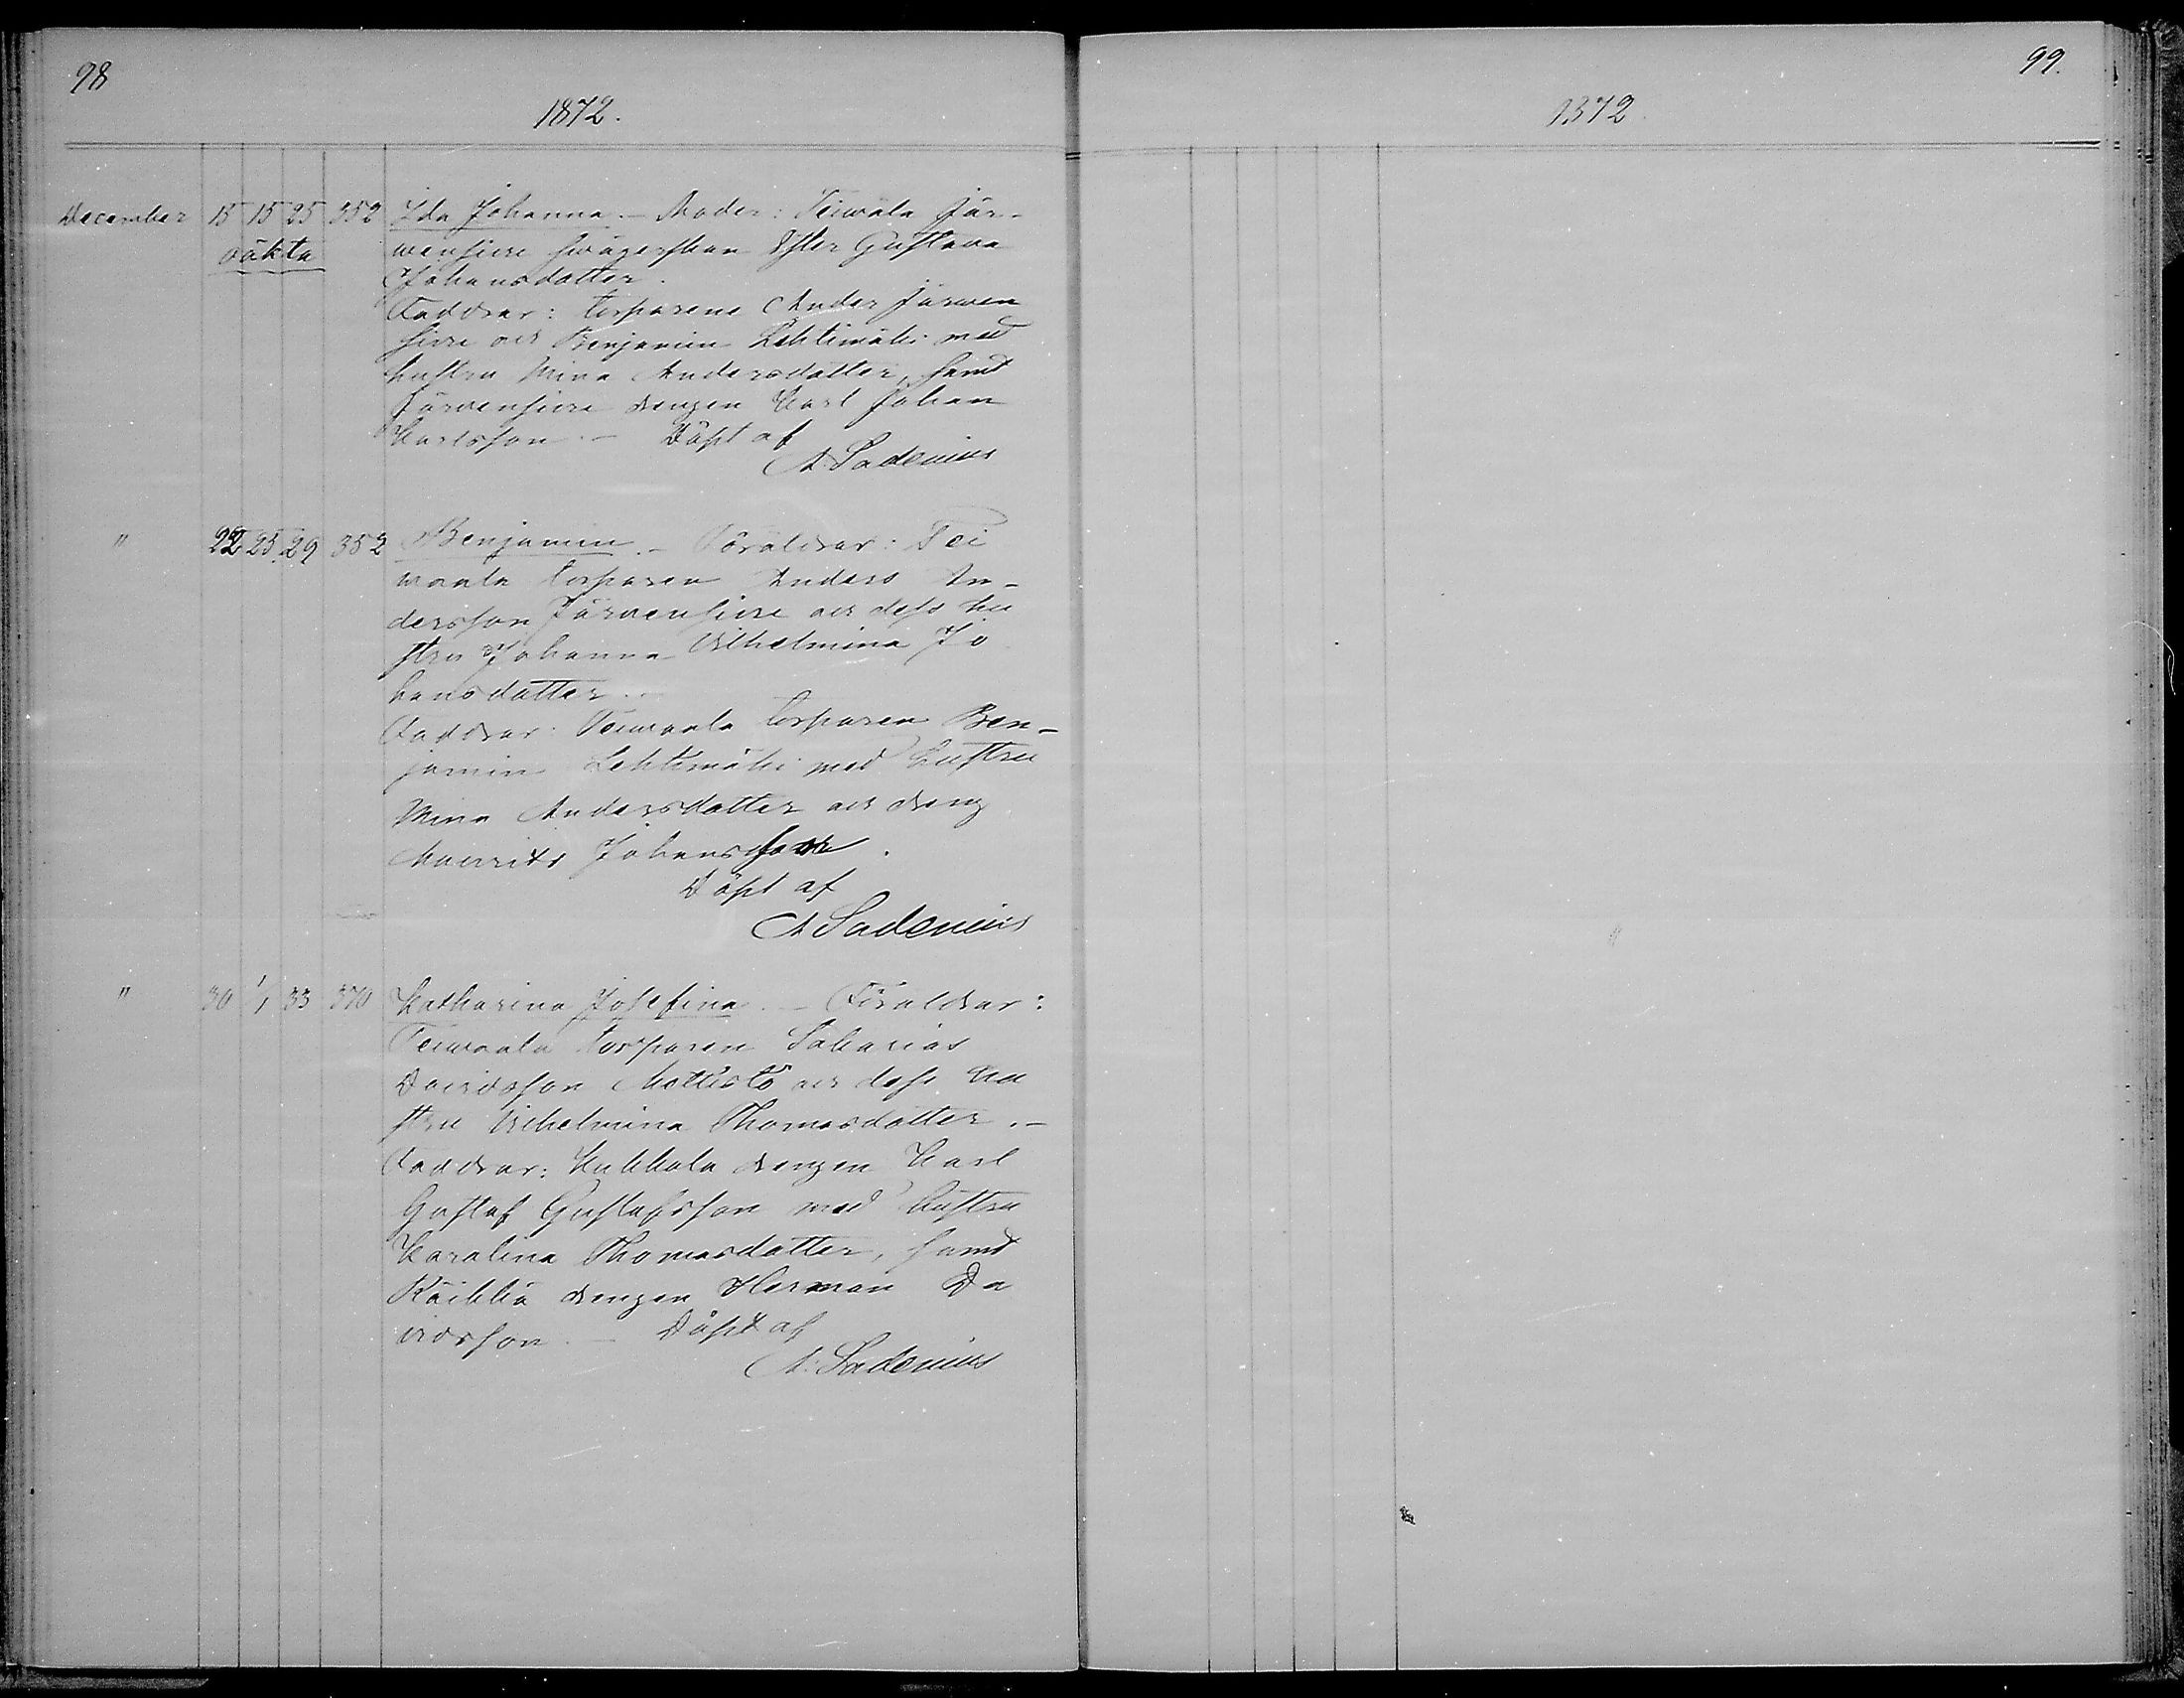 98
1872.
December 15 15 25 352 Ida Johanna. - Moder: Teiwala Jär-
oäkta
wensiwu swägerskan Ester Gustava
Johansdotter.
Faddrar: torparene Ander Järwen
siwu och Benjamin Lehtimäki med
hustru Mina Andersdotter, samt
Järvensivu drengen Karl Johan
Karlsson. - Döpt af
A. Sadenius
" 22 25 29 352 Benjamin. - Föräldrar: Tei
waala torparen Anders An-
dersson Järvensivu och dess hu
stru Johanna Vilhelmina Jo
hansdotter.
Faddrar: Teiwaala torparen Ben-
jamin Lehtimäki med hustru
Mina Andersdotter och dreng
Maurits Johansson.
Döpt af
A Sadenius
" 30 1/1 33 370 Katharina Josefina. - Föräldrar:
Teiwaala torparen Sakarias
Davidsson Mattistö och dess hu
stru Vilhelmina Thomasdotter. -
Faddrar: Kukkola drengen Karl
Gustaf Gustafsson med hustru
Karolina Thomasdotter, samt
Räikkä drengen Herman Da
vidsson. - Döpt af
A. Sadenius
99.
1872.